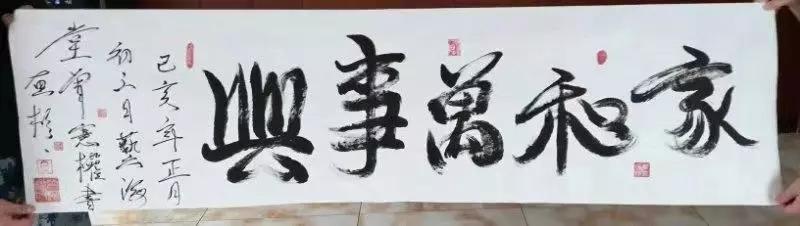 家和萬事興
己亥年正月
初六日藝海
堂曾憲權書